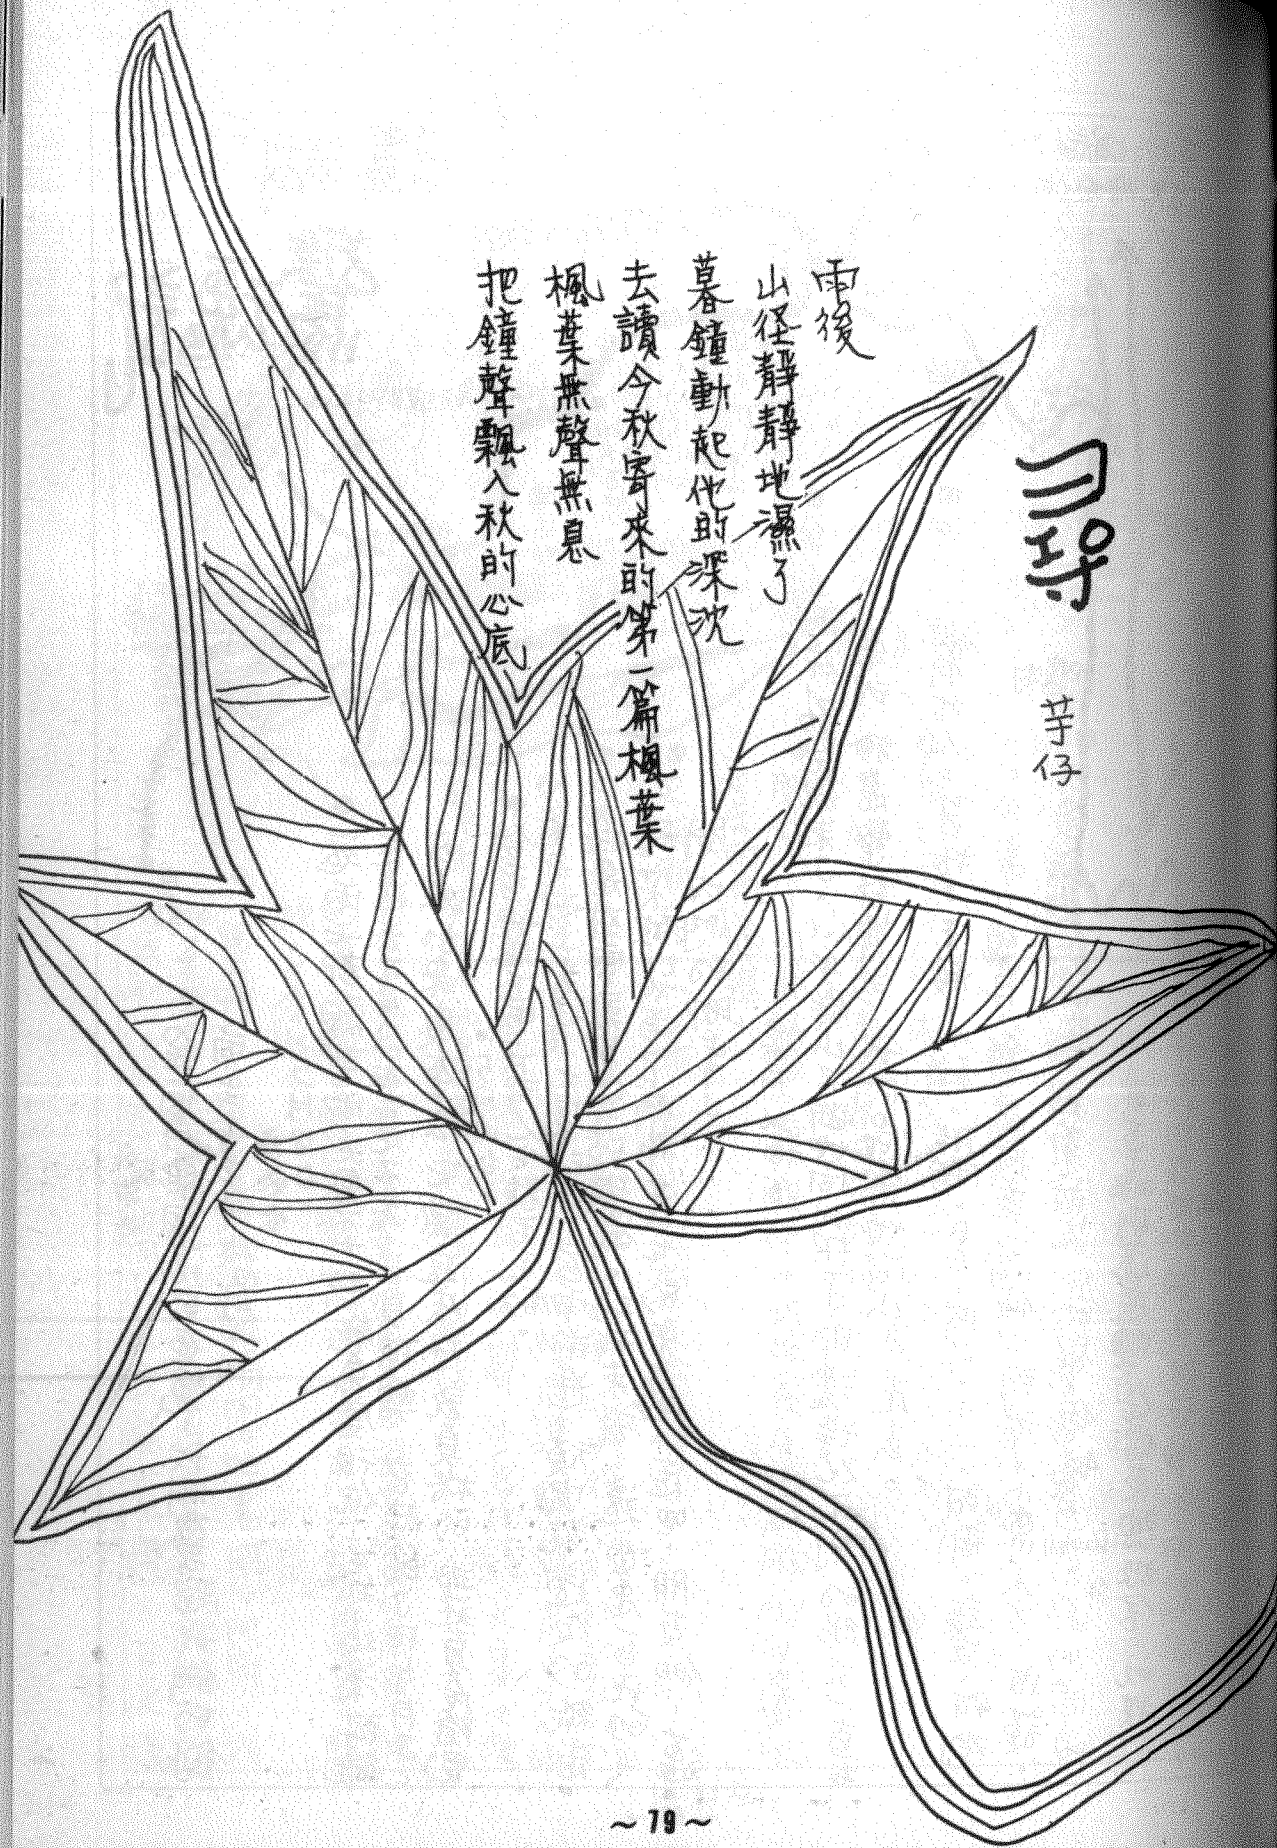 尋
芋仔
雨後
山径靜靜地濕了
暮鐘動起他的深沈
去讀今秋寄來的第一篇楓葉
楓葉無聲無息
把鐘聲飄入秋的心底
～79～